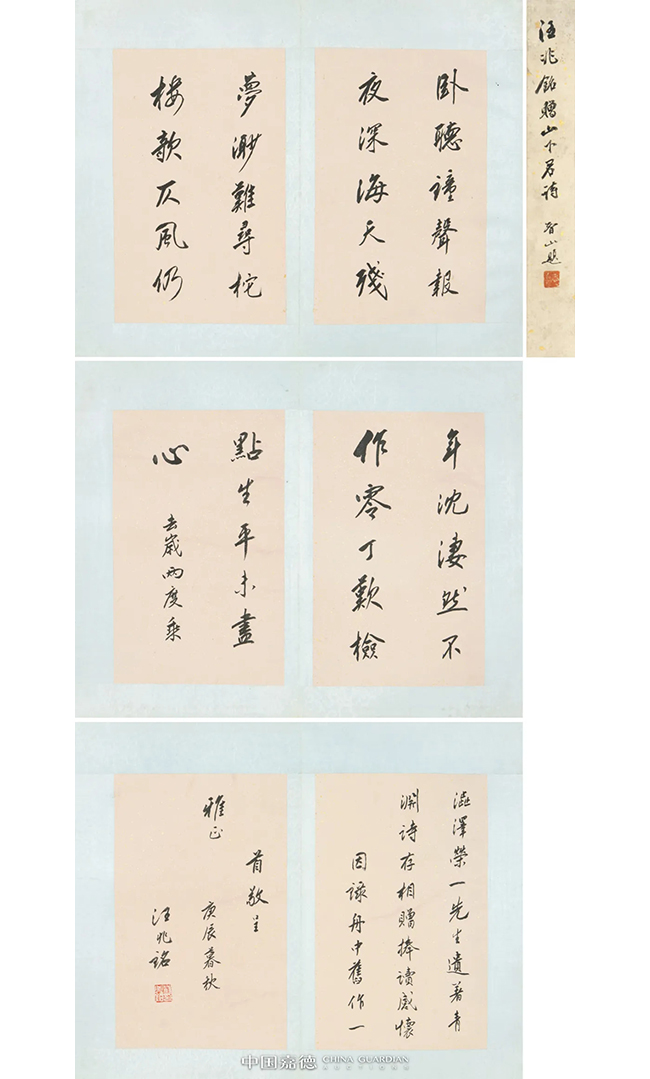 汪兆銘贈山下君詩
山題
卧聽鐘聲報
夜深海天殘
夢渺難尋柁
樓欹仄風仍
年沈淒然不
作零丁歎檢
點生平未盡
心
去歲兩度乘
澁澤榮一先生遺著青
淵詩存相贈捧讀感懷
因錄舟中舊作一
首敬呈
雅正
庚辰暮秋
汪兆銘
中国嘉德 CHINA GUARDIAN
AUCTIONS